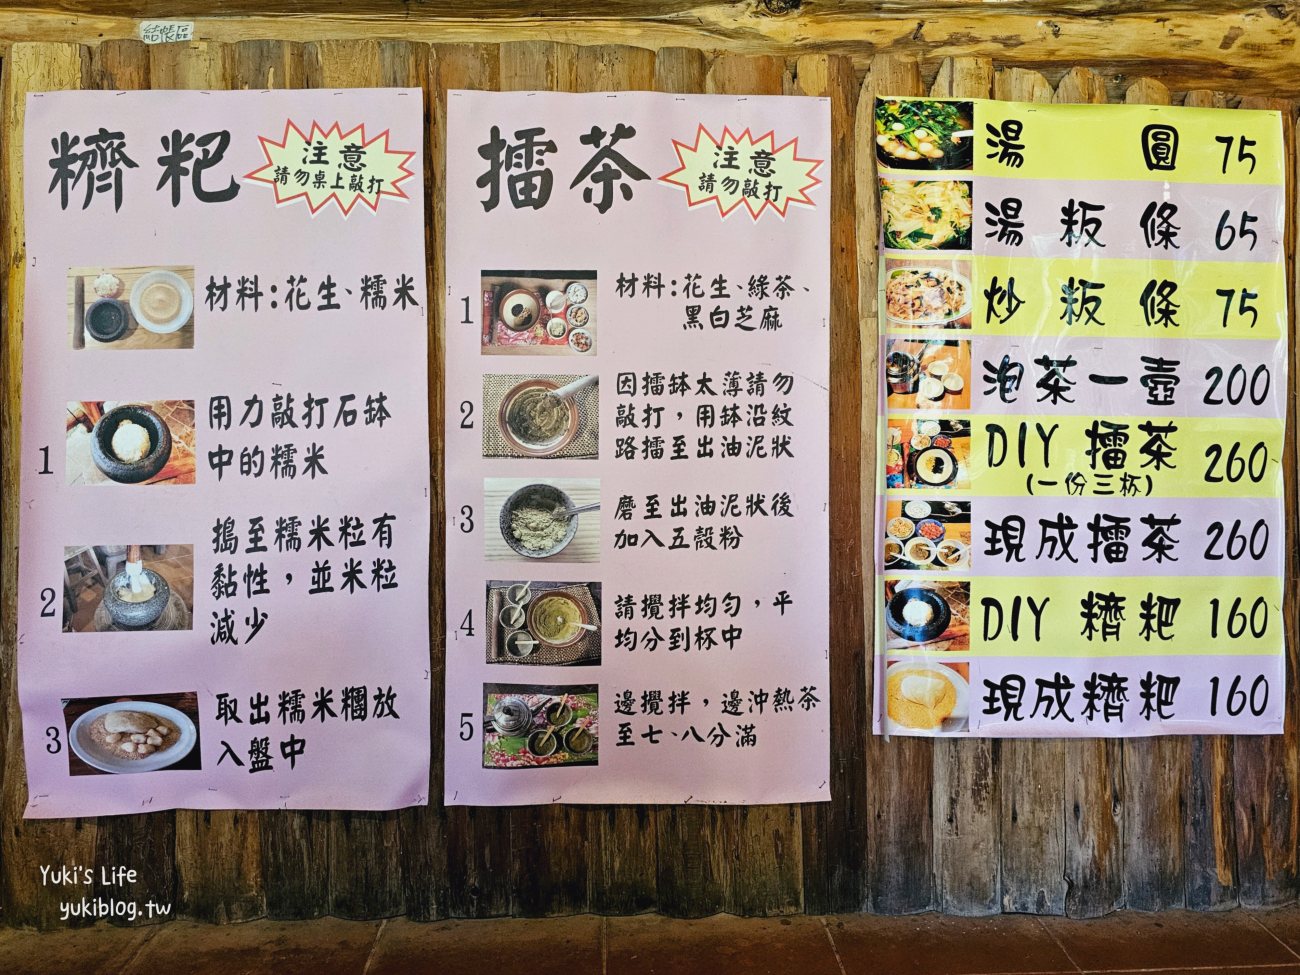 糍粑
注意
請勿桌上敲打
材料:花生、糯米
1
用力敲打石缽
中的糯米
2
搗至糯米粒有
黏性，並米粒
減少
3
取出糯米糰放
入盤中
擂茶
注意
請勿敲打
1
材料:花生、綠茶、
黑白芝麻
2
因擂缽太薄請勿
敲打，用缽沿紋
路擂至出油泥狀
3
磨至出油泥狀後
加入五穀粉
4
請攪拌均勻，平
均分到杯中
5
邊攪拌，邊沖熱茶
至七、八分滿
湯圓 75
湯粄條 65
炒粄條 75
泡茶一壺 200
DIY 擂茶 260
(一份三杯)
現成擂茶 260
DIY 糍粑 160
現成糍粑 160
Yuki's Life
yukiblog.tw